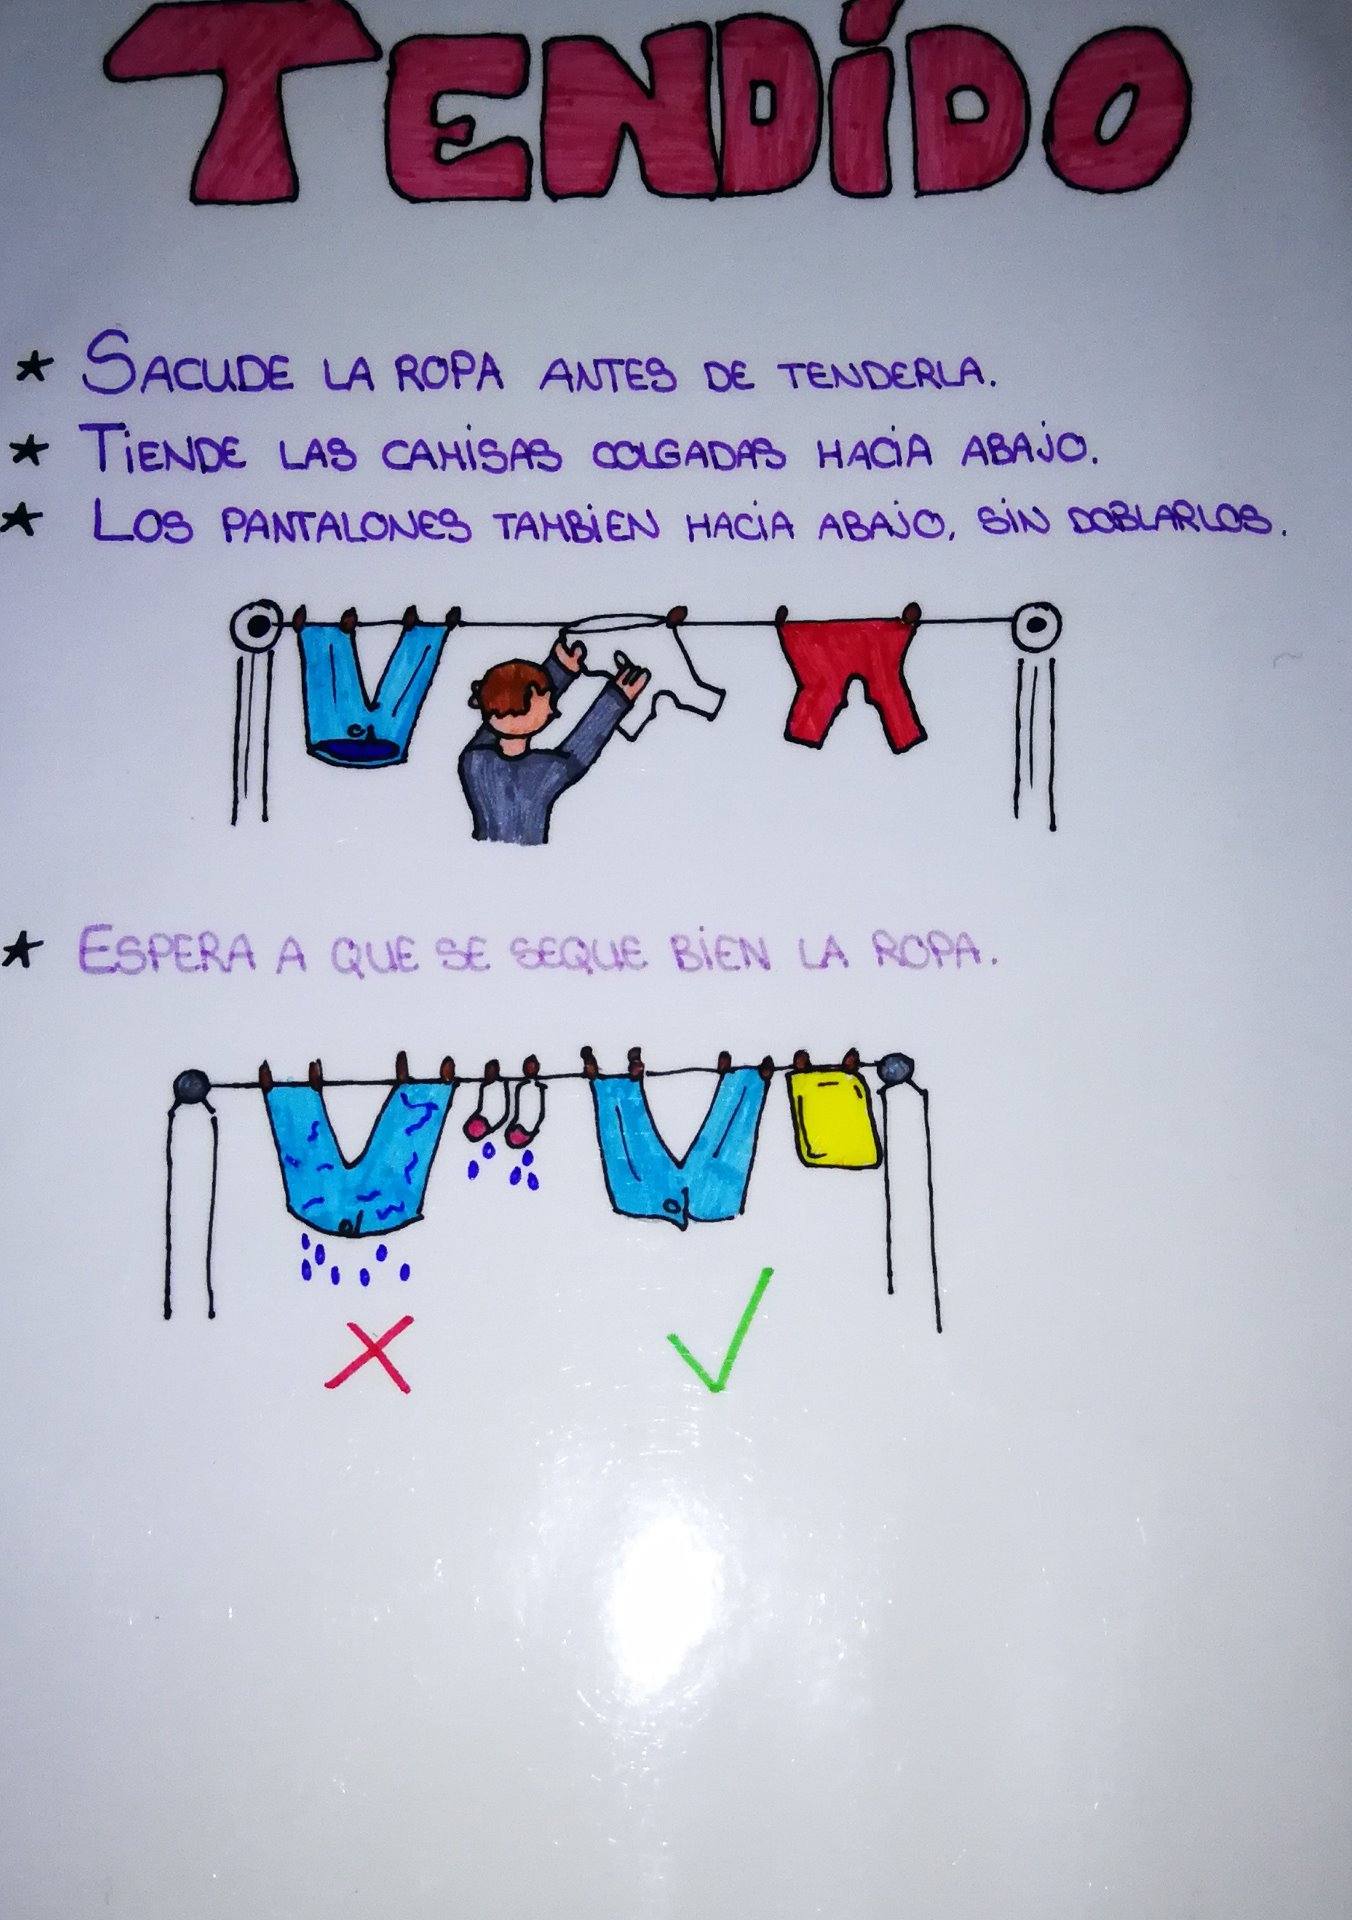 TENDIDO
★ SACUDE LA ROPA ANTES DE TENDERLA.
★ TIENDE LAS CAMISAS COLGADAS HACIA ABAJO.
★ LOS PANTALONES TAMBIEN HACIA ABAJO, SIN DOBLARLOS.
★ ESPERA A QUE SE SEQUE BIEN LA ROPA.